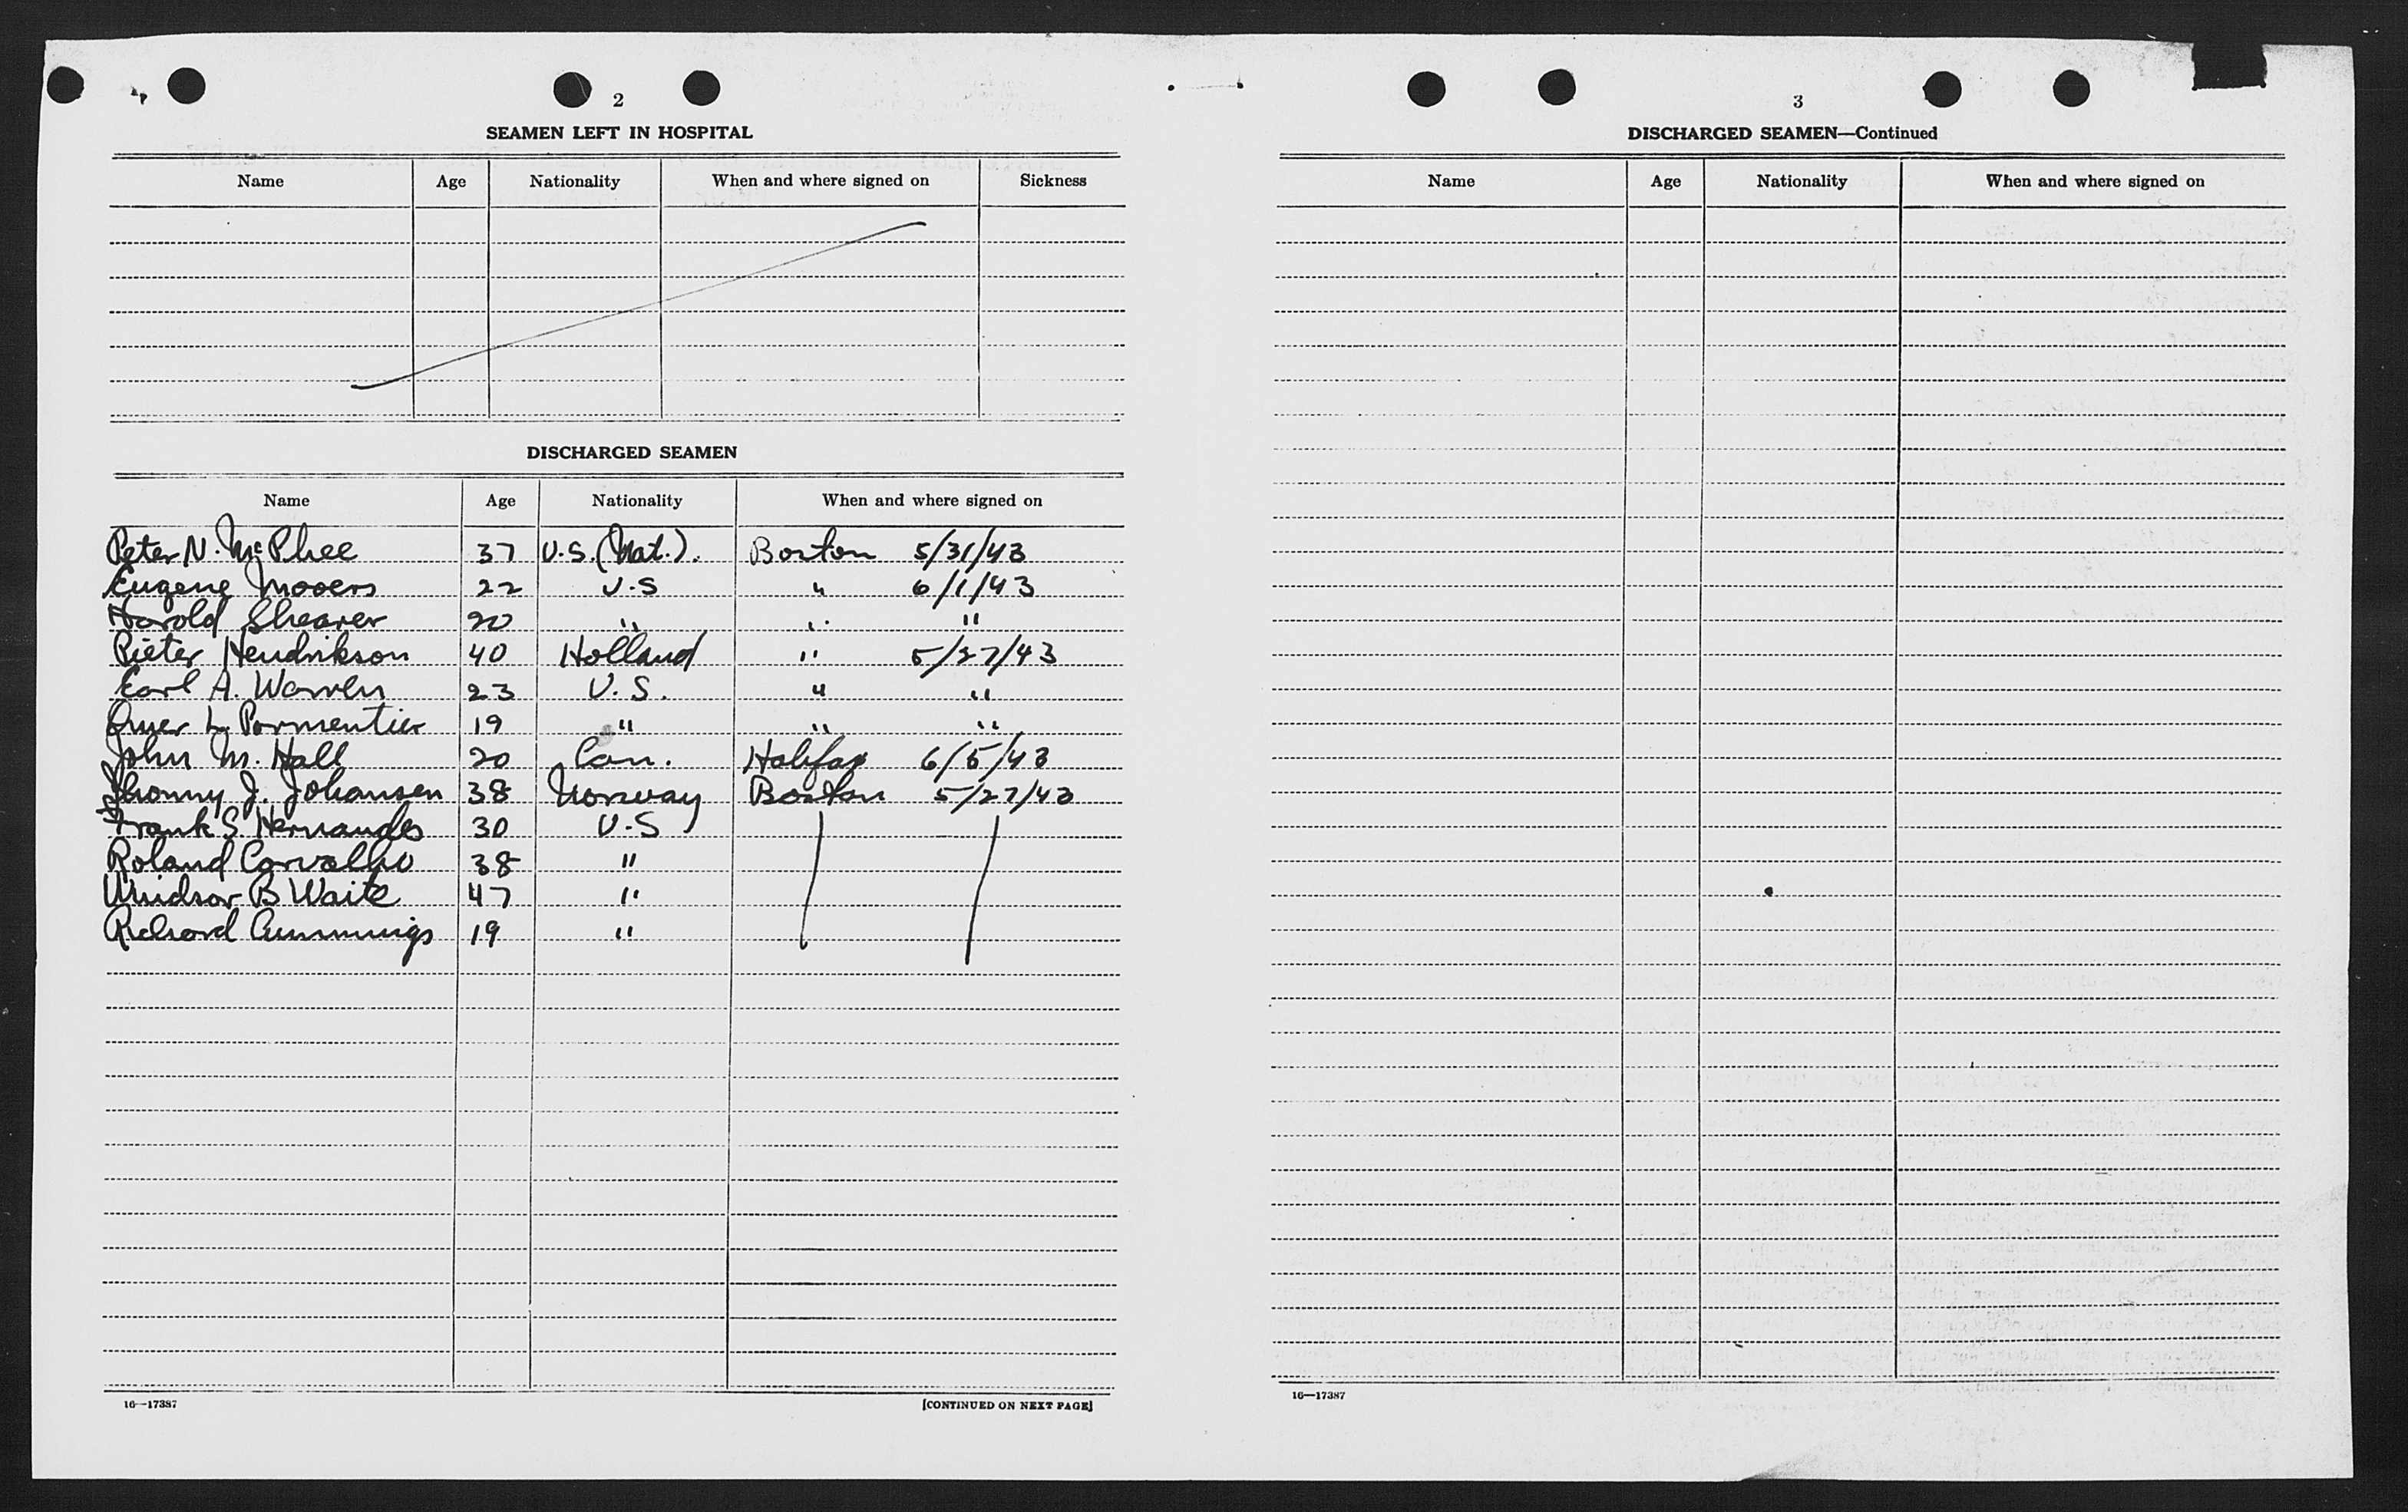 2
SEAMEN LEFT IN HOSPITAL
Name Age Nationality When and where signed on Sickness
DISCHARGED SEAMEN
Name Age Nationality When and where signed on
Peter N. McPhee 37 U.S. (Nat.). Boston 5/31/43
Eugene Mooers 22 U.S " 6/1/43
Harold Shearer 20 " " "
Pieter Hendrikson 40 Holland " 5/27/43
Earl A. Warren 23 U.S. " "
Omer L Parmentier 19 " " "
John M. Hall 20 Can. Halifax 6/5/43
Jhonny J. Johansen 38 Norway Boston 5/27/43
Frank S. Hernandes 30 U.S
Roland Carvalho 38 "
Windsor B Waite 47 "
Richard Cummings 19 "
16—17387
[CONTINUED ON NEXT PAGE]
3
DISCHARGED SEAMEN—Continued
Name Age Nationality When and where signed on
16—17387